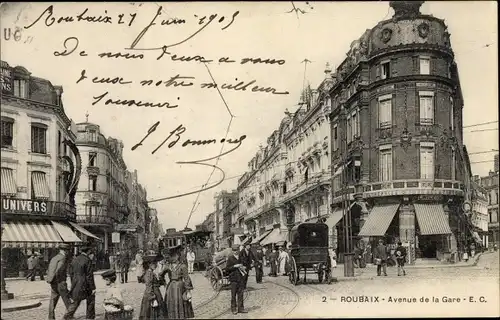 Roubaix 27 Juin 1905
De nous deux a vous
deux notre meilleur
souvenir
UNIVERS
E. C.
2 - ROUBAIX - Avenue de la Gare - E. C.